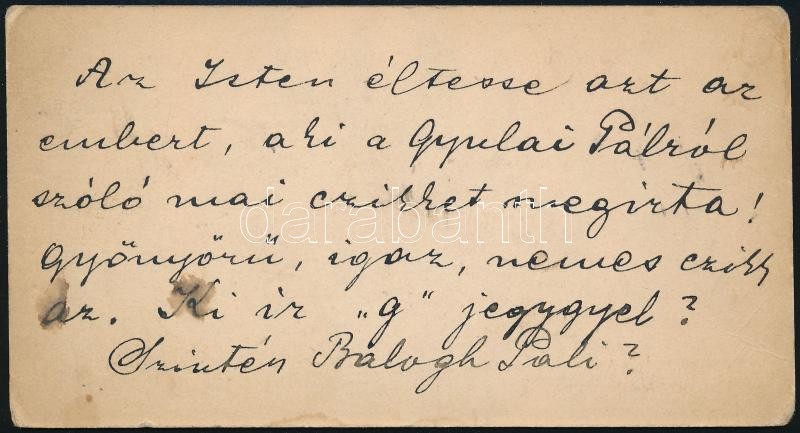 Az Isten éltesse azt az
embert, aki a Gyulai Pálról
szóló mai czikket megirta!
Gyönyörü, igaz, nemes czikk
az. Ki ír „g" jegygyel?
Szintén Balogh Pali?
darabanth